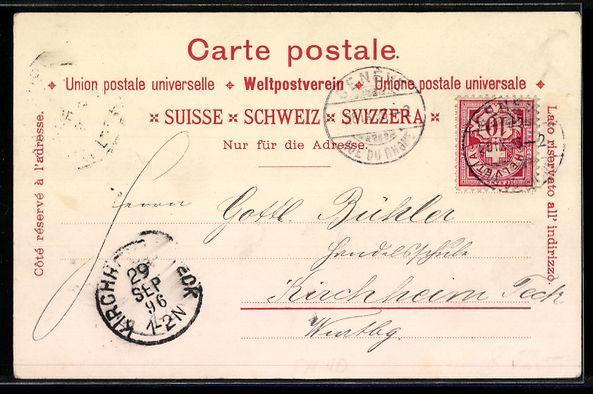 Carte postale.
Union postale universelle ✦ Weltpostverein ✦ Unione postale universale
SUISSE ✕ SCHWEIZ ✕ SVIZZERA
Nur für die Adresse.
Côté réservé à l'adresse.
Lato riservato all' indirizzo
10
HELVETIA
RUE DU RHÔNE
Herrn Gottl. Bühler
Handelsschule
Kirchheim Teck
Wurtbg.
29
SEP
96
1-2N